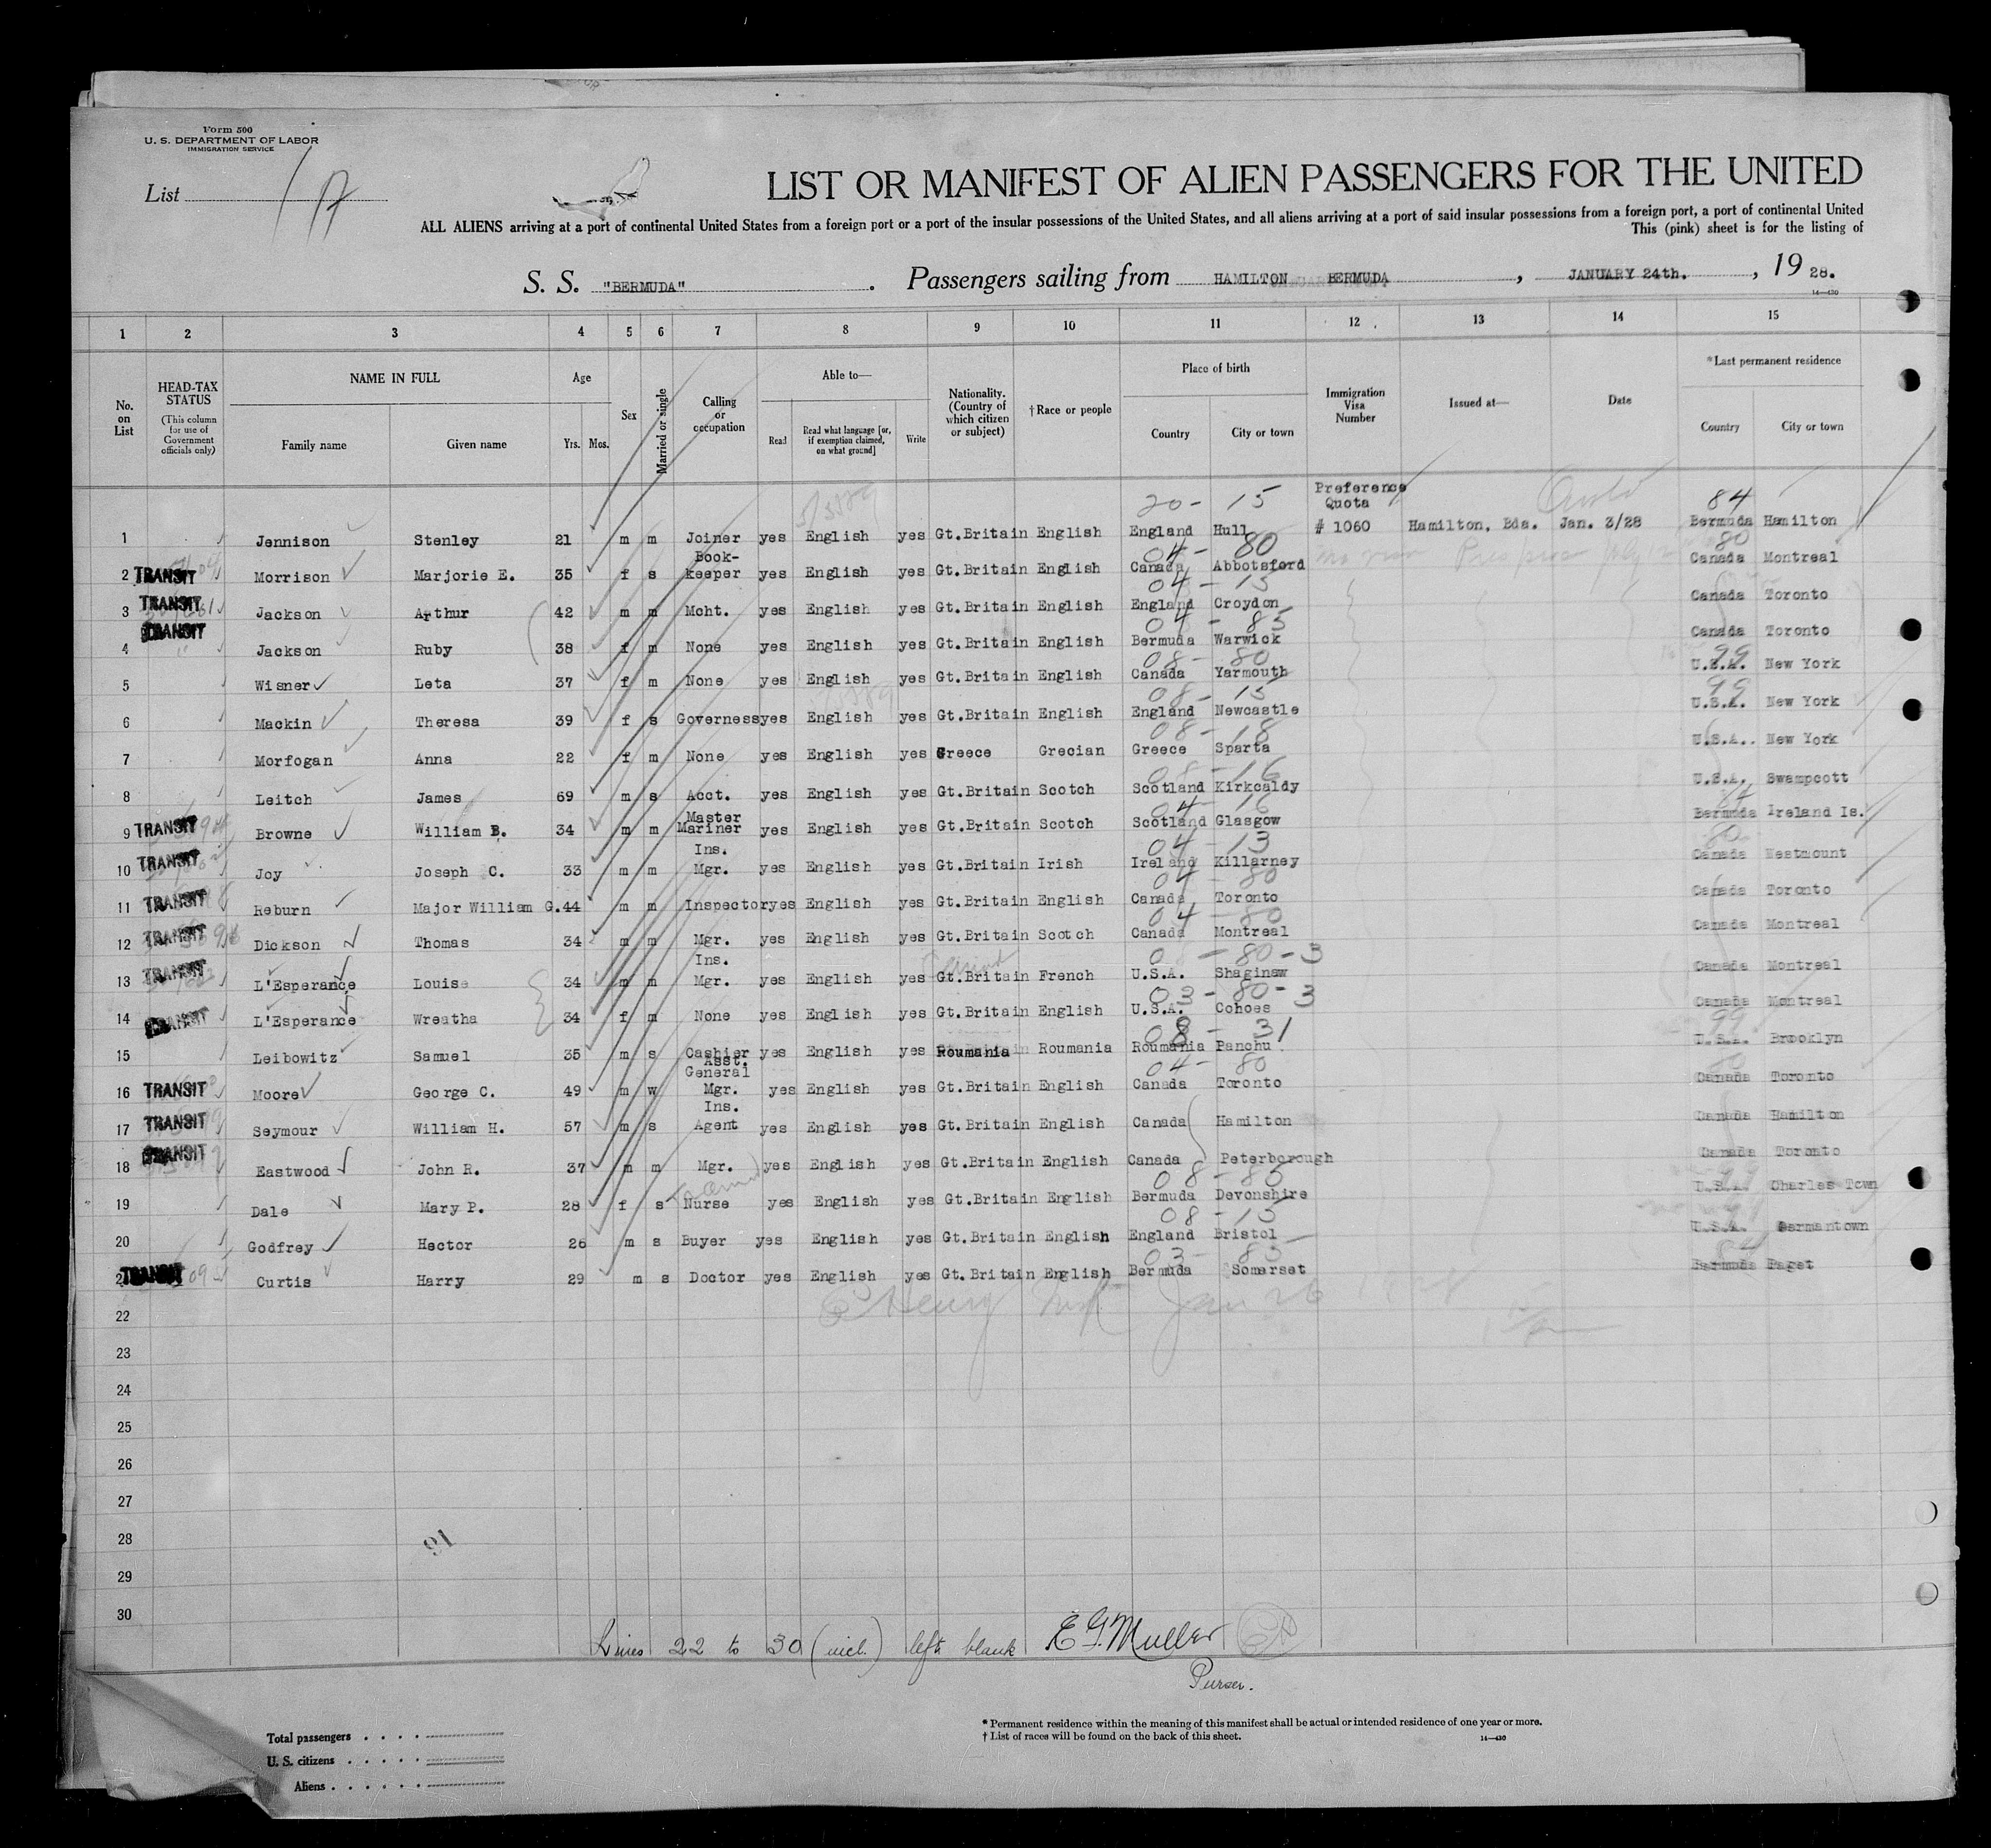 Form 500
U. S. DEPARTMENT OF LABOR
IMMIGRATION SERVICE
List
LIST OR MANIFEST OF ALIEN PASSENGERS FOR THE UNITED
ALL ALIENS arriving at a port of continental United States from a foreign port or a port of the insular possessions of the United States, and all aliens arriving at a port of said insular possessions from a foreign port, a port of continental United
This (pink) sheet is for the listing of
S. S. "BERMUDA". Passengers sailing from HAMILTON BERMUDA, JANUARY 24th., 1928.
14—430
1 2 3 4 5 6 7 8 9 10 11 12 13 14 15
No. on List
HEAD-TAX STATUS (This column for use of Government officials only)
NAME IN FULL Family name Given name
Age Yrs. Mos.
Sex
Married or single
Calling or occupation
Able to— Read Read what language [or, if exemption claimed, on what ground] Write
Nationality. (Country of which citizen or subject)
† Race or people
Place of birth Country City or town
Immigration Visa Number
Issued at—
Date
* Last permanent residence Country City or town
20 - 15 Preference Quota 84
1 Jennison Stenley 21 m m Joiner yes English yes Gt.Britain English England Hull # 1060 Hamilton, Bda. Jan. 3/28 Bermuda Hamilton
04 - 80 80
2 TRANSIT Morrison Marjorie E. 35 f s Book-keeper yes English yes Gt.Britain English Canada Abbotsford Canada Montreal
04 - 15
3 TRANSIT Jackson Arthur 42 m m Mcht. yes English yes Gt.Britain English England Croydon Canada Toronto
04 - 85
4 TRANSIT Jackson Ruby 38 f m None yes English yes Gt.Britain English Bermuda Warwick Canada Toronto
08 - 80 99
5 Wisner Leta 37 f m None yes English yes Gt.Britain English Canada Yarmouth U.S.A. New York
08 - 15 99
6 Mackin Theresa 39 f s Governess yes English yes Gt.Britain English England Newcastle U.S.A. New York
08 - 18
7 Morfogan Anna 22 f m None yes English yes Greece Grecian Greece Sparta U.S.A. New York
08 - 16
8 Leitch James 69 m s Acct. yes English yes Gt.Britain Scotch Scotland Kirkcaldy U.S.A. Swampcott
04 - 16
9 TRANSIT Browne William B. 34 m m Master Mariner yes English yes Gt.Britain Scotch Scotland Glasgow Bermuda Ireland Is.
04 - 13
10 TRANSIT Joy Joseph C. 33 m m Ins. Mgr. yes English yes Gt.Britain Irish Ireland Killarney Canada Westmount
04 - 80
11 TRANSIT Reburn Major William G. 44 m m Inspector yes English yes Gt.Britain English Canada Toronto Canada Toronto
04 - 80
12 TRANSIT Dickson Thomas 34 m m Mgr. yes English yes Gt.Britain Scotch Canada Montreal Canada Montreal
0 - 80 - 3
13 TRANSIT L'Esperance Louise 34 m m Ins. Mgr. yes English yes Gt.Britain French U.S.A. Shaginaw Canada Montreal
03 - 80 - 3
14 TRANSIT L'Esperance Wreatha 34 f m None yes English yes Gt.Britain English U.S.A. Cohoes Canada Montreal
08 - 31 99
15 Leibowitz Samuel 35 m s Cashier yes English yes Roumania Roumania Roumania Panchu U.S.A. Brooklyn
04 - 80
16 TRANSIT Moore George C. 49 m w Asst. General Mgr. yes English yes Gt.Britain English Canada Toronto Canada Toronto
17 TRANSIT Seymour William H. 57 m s Ins. Agent yes English yes Gt.Britain English Canada Hamilton Canada Hamilton
18 TRANSIT Eastwood John R. 37 m m Mgr. yes English yes Gt.Britain English Canada Peterborough Canada Toronto
08 - 85
19 Dale Mary P. 28 f s Nurse yes English yes Gt.Britain English Bermuda Devonshire U.S.A. Charles Town
08 - 15
20 Godfrey Hector 26 m s Buyer yes English yes Gt.Britain English England Bristol U.S.A. Germantown
03 - 85
21 TRANSIT Curtis Harry 29 m s Doctor yes English yes Gt.Britain English Bermuda Somerset Bermuda Paget
22 Henry Jan 26
23
24
25
26
27
28
29
30
Lines 22 to 30 (incl.) left blank E G Muller
Purser.
Total passengers
U. S. citizens
Aliens
* Permanent residence within the meaning of this manifest shall be actual or intended residence of one year or more.
† List of races will be found on the back of this sheet.
14—430